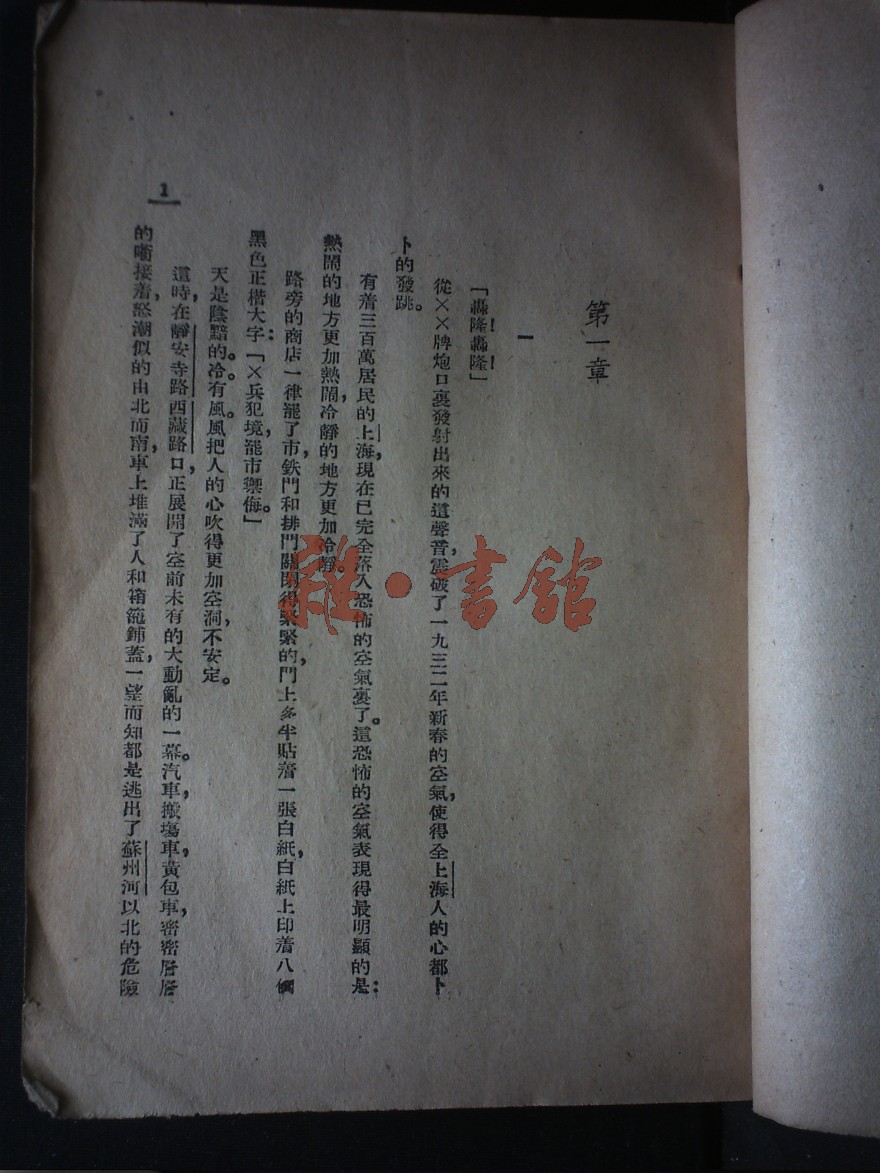 第一章
一
「轟隆!轟隆!」
從××牌炮口裏發射出來的這聲音,震破了一九三二年新春的空氣,使得全上海人的心都卜
卜的發跳。
有着三百萬居民的上海,現在已完全落入恐怖的空氣裏了。這恐怖的空氣表現得最明顯的是:
熱鬧的地方更加熱鬧,冷靜的地方更加冷靜。
路旁的商店一律罷了市,鉄門和排門關閉得緊緊的,門上多半貼着一張白紙,白紙上印着八個
黑色正楷大字:「×兵犯境,罷市禦侮。」
天是陰黯的。冷。有風。風把人的心吹得更加空洞,不安定。
這時,在靜安寺路西藏路口,正展開了空前未有的大動亂的一幕。汽車,搬塲車,黃包車,密密層層
的啣接着,怒潮似的由北而南,車上堆滿了人和箱籠鋪蓋,一望而知都是逃出了蘇州河以北的危險
1
雜·書館